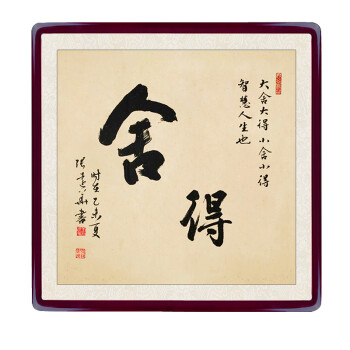 舍得
大舍大得 小舍小得
智慧人生也
时在乙未夏
書